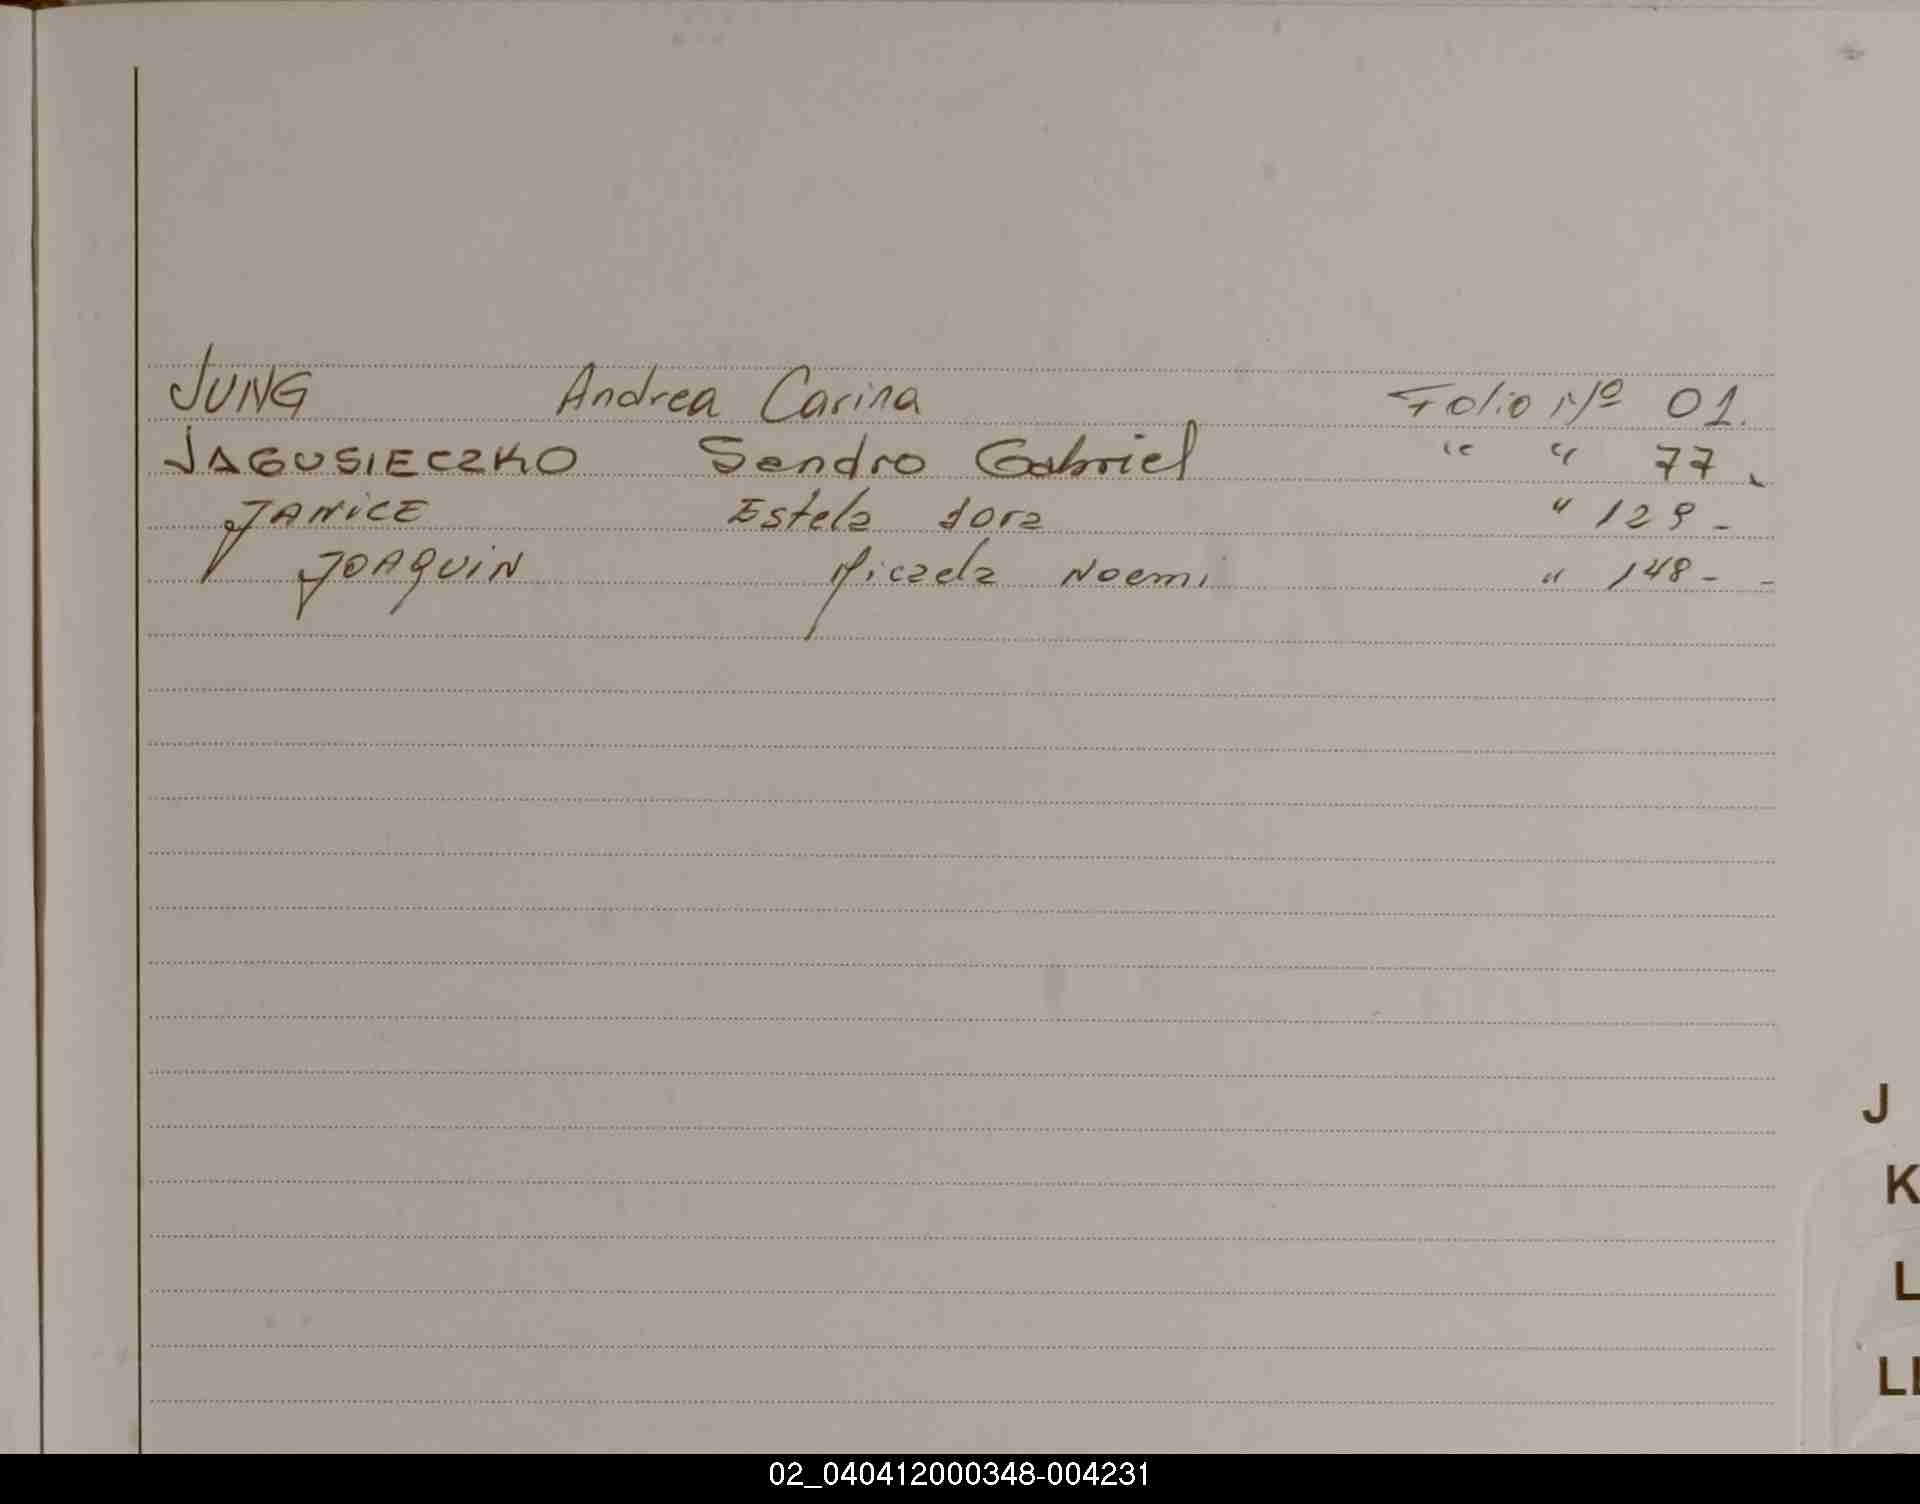 JUNG Andrea Carina Folio Nº 01.
JAGUSIECZKO Sandro Gabriel " " 77.
JANICE Estela Dora " 129-
JOAQUIN Micaela Noemi " 148- -
J
K
L
LL
02_040412000348-004231